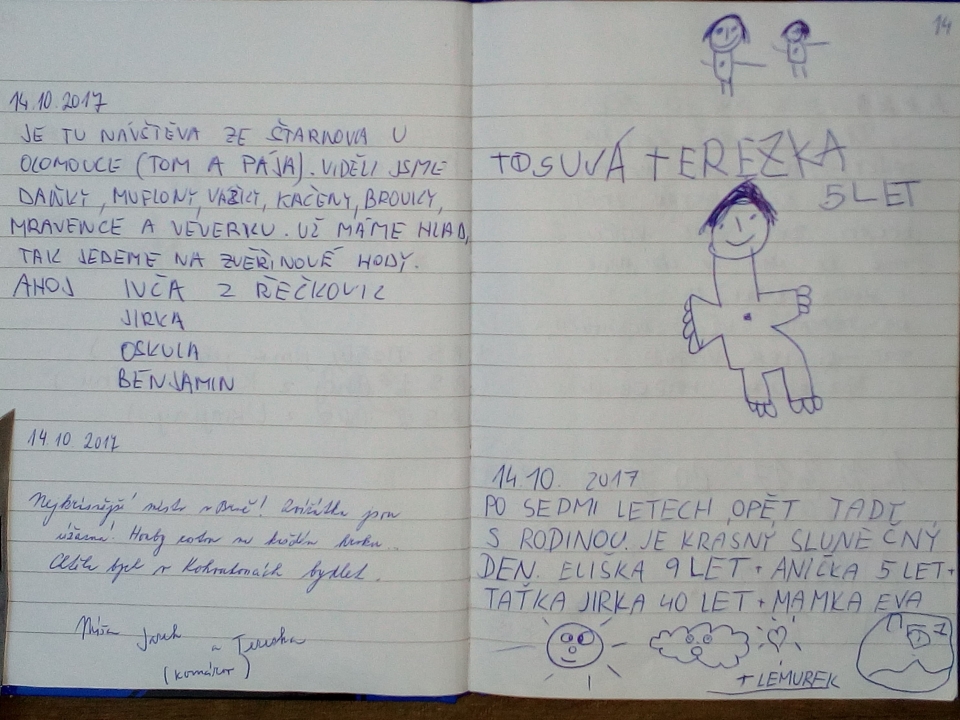 14.10.2017
JE TU NÁVŠTĚVA ZE ŠTARNOVA U
OLOMOUCE (TOM A PÁJA). VIDĚLI JSME
DAŇKY, MUFLONY, VÁŽKY, KAČENY, BROUKY,
MRAVENCE A VEVERKU. UŽ MÁME HLAD,
TAK JEDEME NA ZVĚŘINOVÉ HODY.
AHOJ IVČA Z ŘEČKOVIC
JIRKA
OSKULA
BENJAMIN
14.10.2017
Nejkrásnější místo v Brně! Zvířátka jsou
úžasná! Houby rostou na každém kroku..
Chtěla bych v Kohoutovicích bydlet.
Míša Jarek a Terezka
(komárov)
14
TOSUVÁ TEREZKA
5 LET
14.10. 2017
PO SEDMI LETECH OPĚT TADY
S RODINOU. JE KRASNÝ SLUNEČNÝ
DEN. ELIŠKA 9 LET + ANIČKA 5 LET +
TAŤKA JIRKA 40 LET + MAMKA EVA
+ LEMUREK